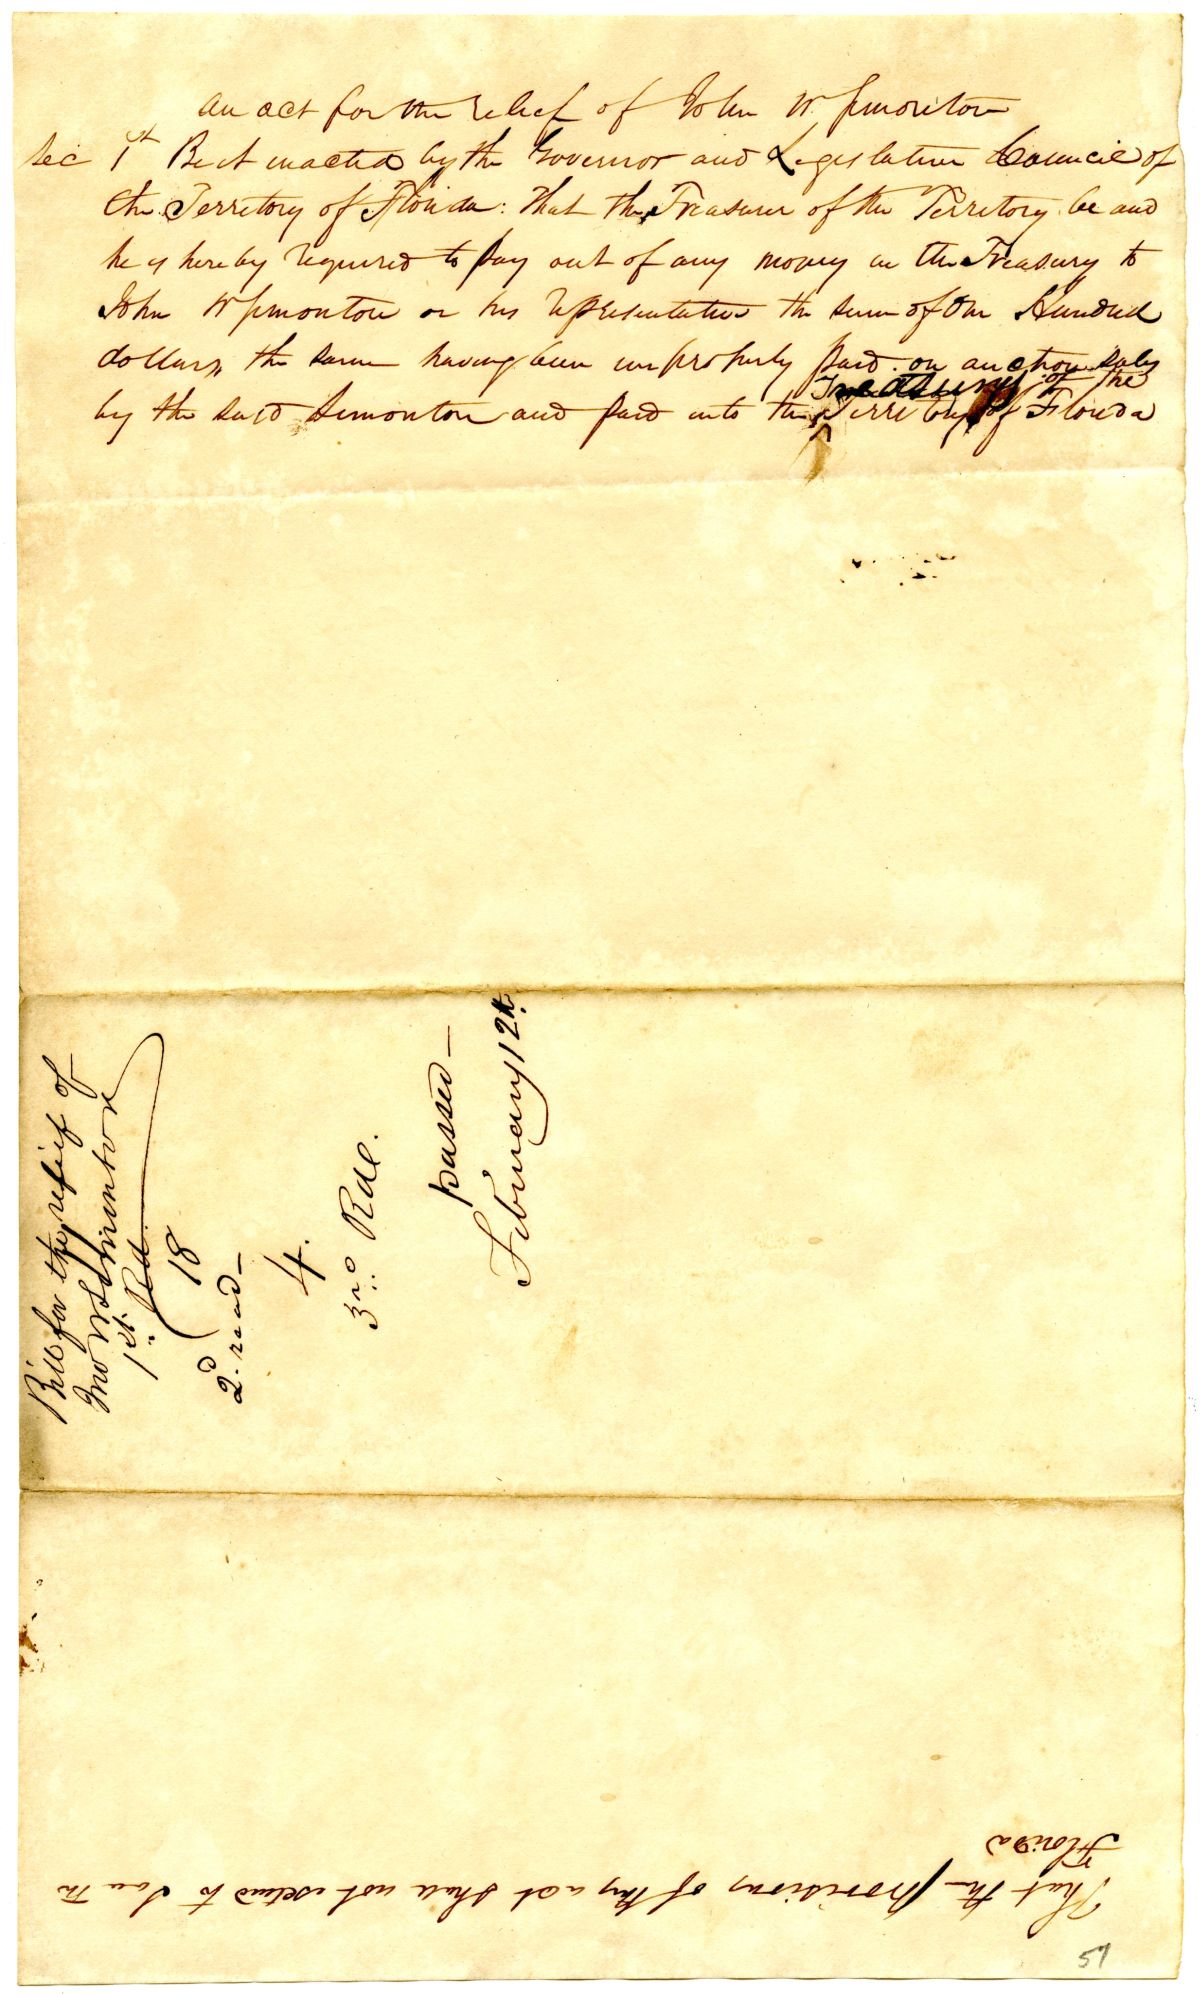 An act for the relief of John W Simonton
Sec 1st Be it enacted by the Governor and Legislative Council of
the Territory of Florida: That the Treasurer of the Territory be and
he is hereby required to pay out of any money in the Treasury to
John W Simonton or his representative the sum of One Hundred
dollars, the same having been improperly paid on auction sales
Treasury of the
by the said Simonton and paid into the Territory of Florida
Bill for the relief of
Jno W Simonton
1st Rd
18
2d read—
4.
3rd Rdg.
passed—
February 12th
That the provisions of this act shall not extend to South
Florida
57